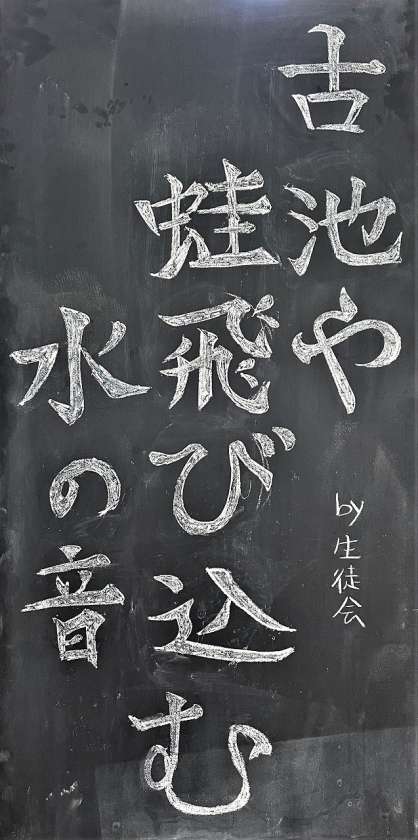 古池や
蛙飛び込む
水の音
by生徒会